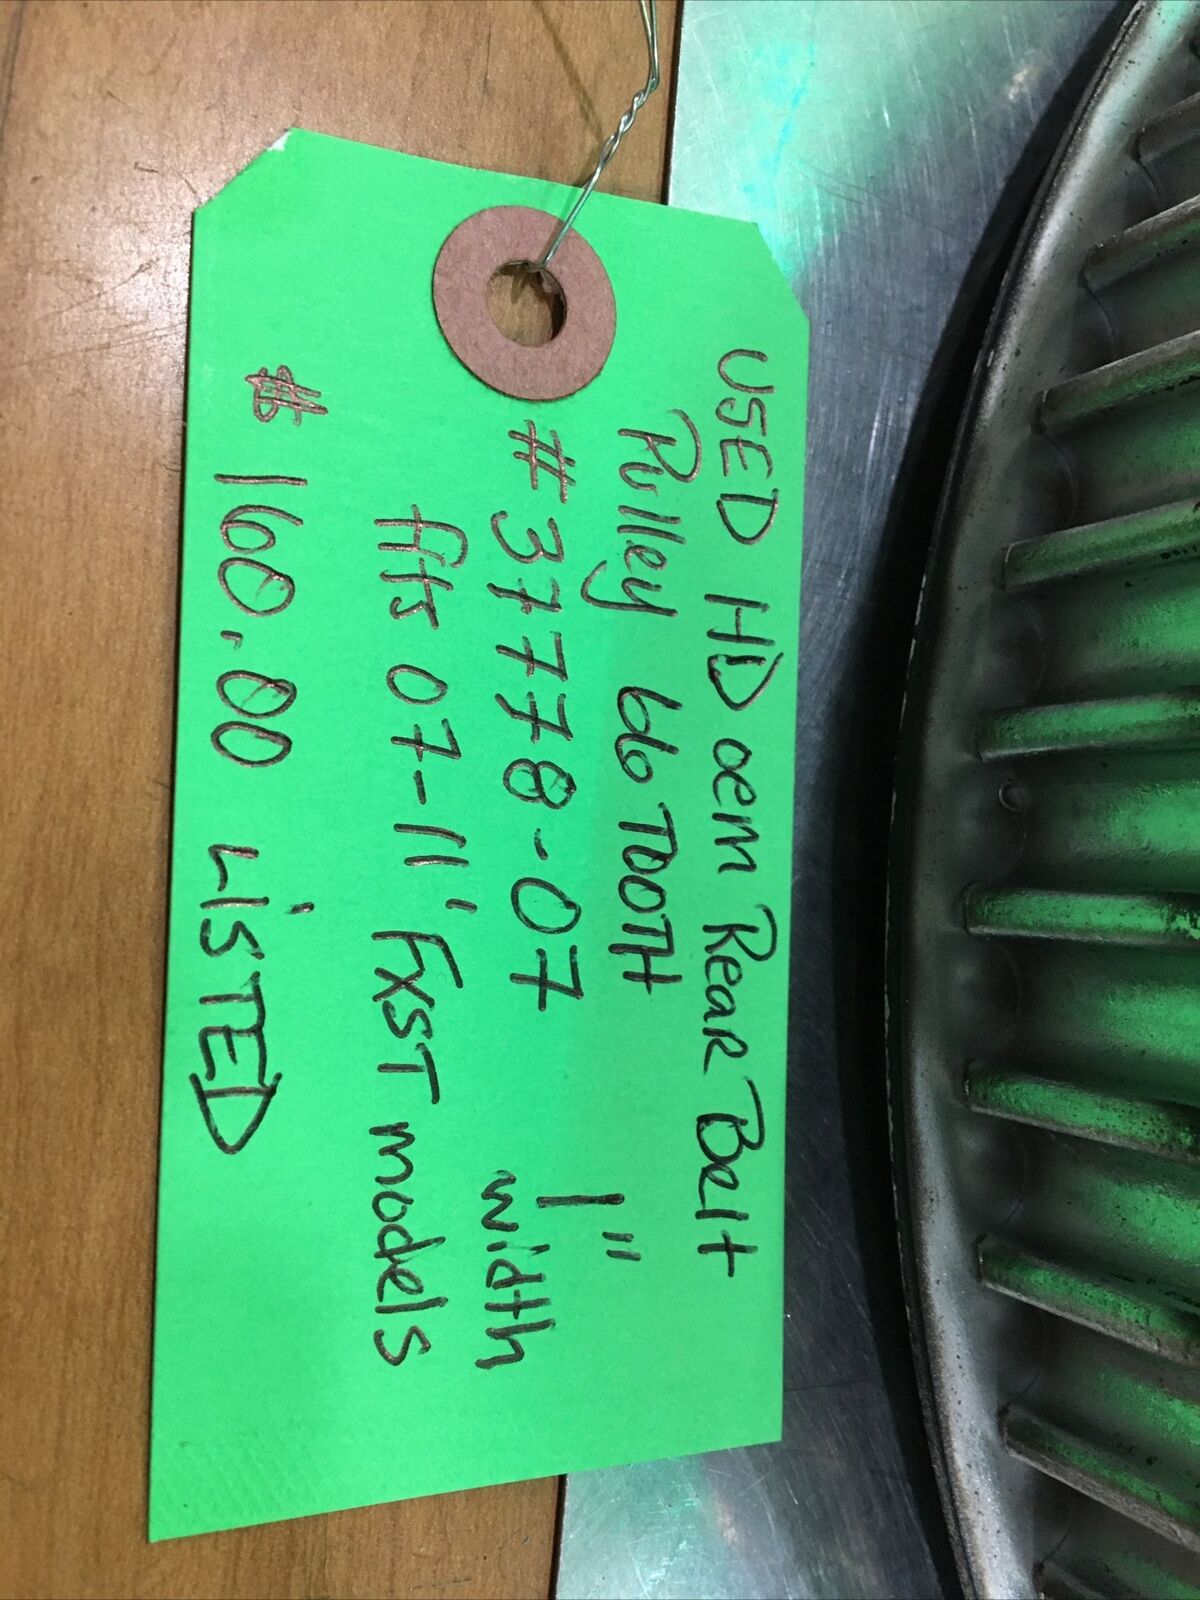 USED HD oem Rear Belt
Pulley 66 TOOTH
#37778-07 1" width
fits 07-11' FXST models
$160.00 LiSTED